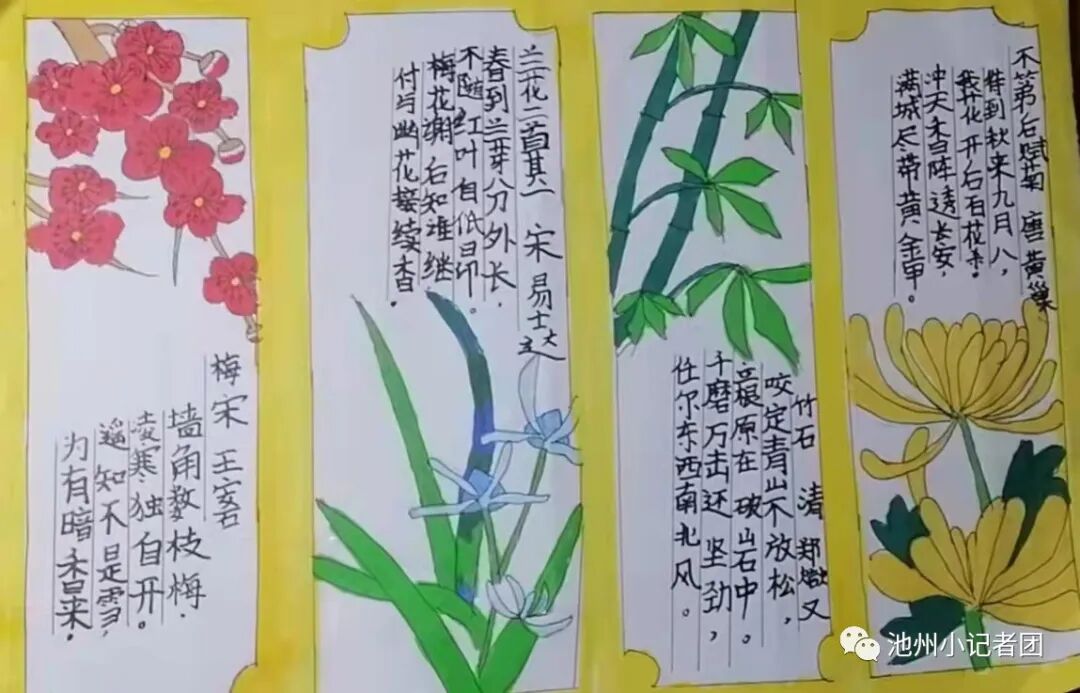 梅 宋 王安石
墙角数枝梅,
凌寒独自开。
遥知不是雪,
为有暗香来。
兰花二首其一 宋 易士达
春到兰芽分外长,
不随红叶自低昂。
梅花谢后知难继
付与幽花接续香。
竹石 清 郑燮
咬定青山不放松,
立根原在破岩中。
千磨万击还坚劲,
任尔东西南北风。
不第后赋菊 唐 黄巢
待到秋来九月八,
我花开后百花杀。
冲天香阵透长安,
满城尽带黄金甲。
池州小记者团